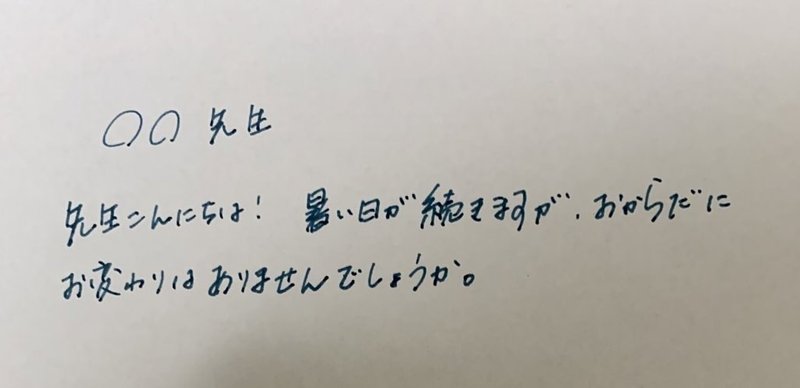 ○○ 先生
先生こんにちは! 暑い日が続きますが、おからだに
お変わりはありませんでしょうか。